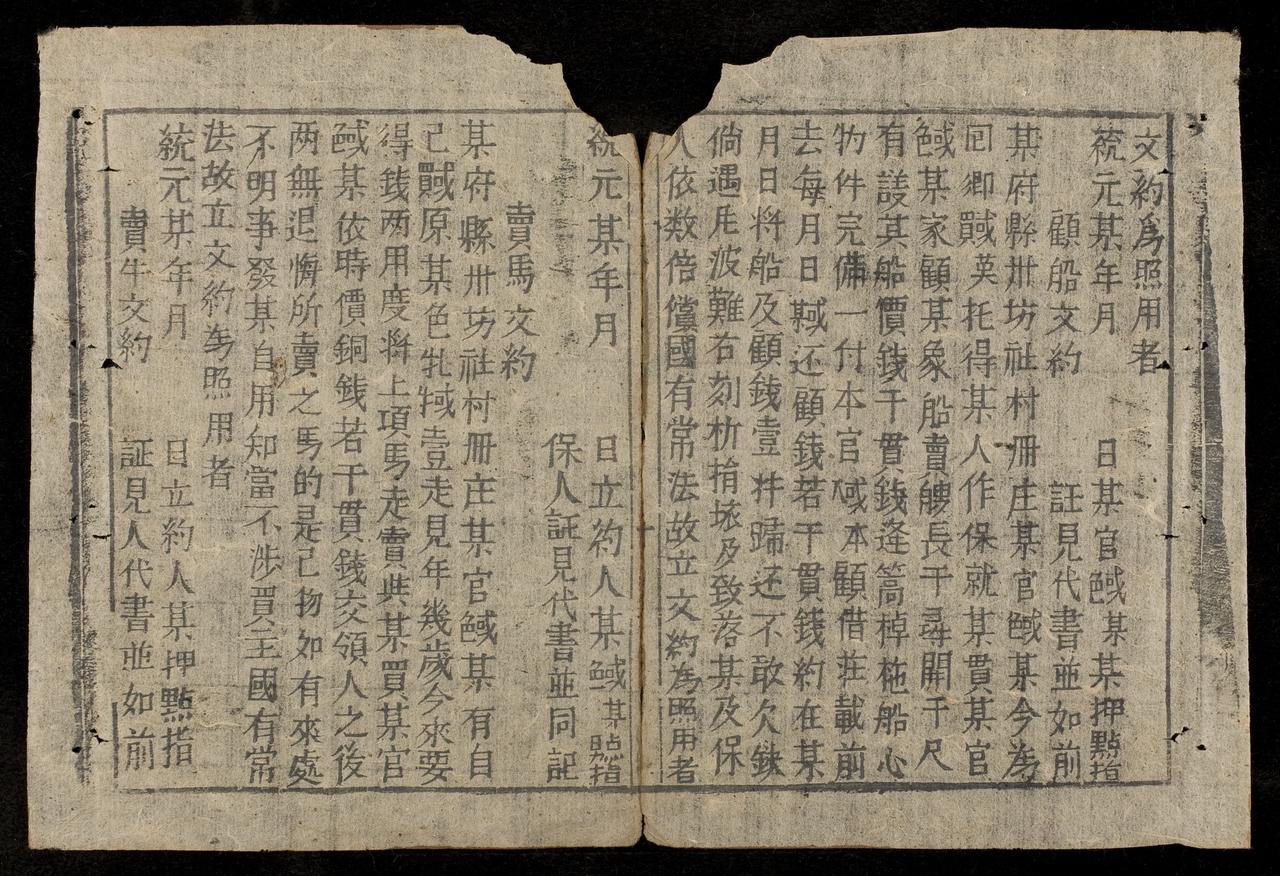 文約為照用者
統元某年月 日某官某某押點指
顧船文約 証見代書並如前
某府縣卅坊社村冊庄某官某今為
回鄉托得某人作保就某貫某官
某家顧某象船賣艘長干尋開干尺
有該其船價錢干貫錢逢篙棹柂船心
物件完備一付本官本顧借莊載前
去每月日還顧錢若干貫錢約在某
月日将船及顧錢壹并歸还不敢欠缺
倘遇風波難右刻析及致落某及保
人依数倍償國有常法故立文約為照用者
統元某年月 日立約人某某點指
保人証見代書並同記
賣馬文約
某府縣卅坊社村冊庄某官某有自
己原某色牝壹走見年幾歲今來要
得錢两用度将上項馬走賣與某買某官
某依時價銅錢若干貫錢交領人之後
两無退悔所賣之馬的是己物如有來處
不明事發某自用知當不涉買主國有常
法故立文約為照用者
統元某年月 日立約人某押點指
賣牛文約 証見人代書並如前